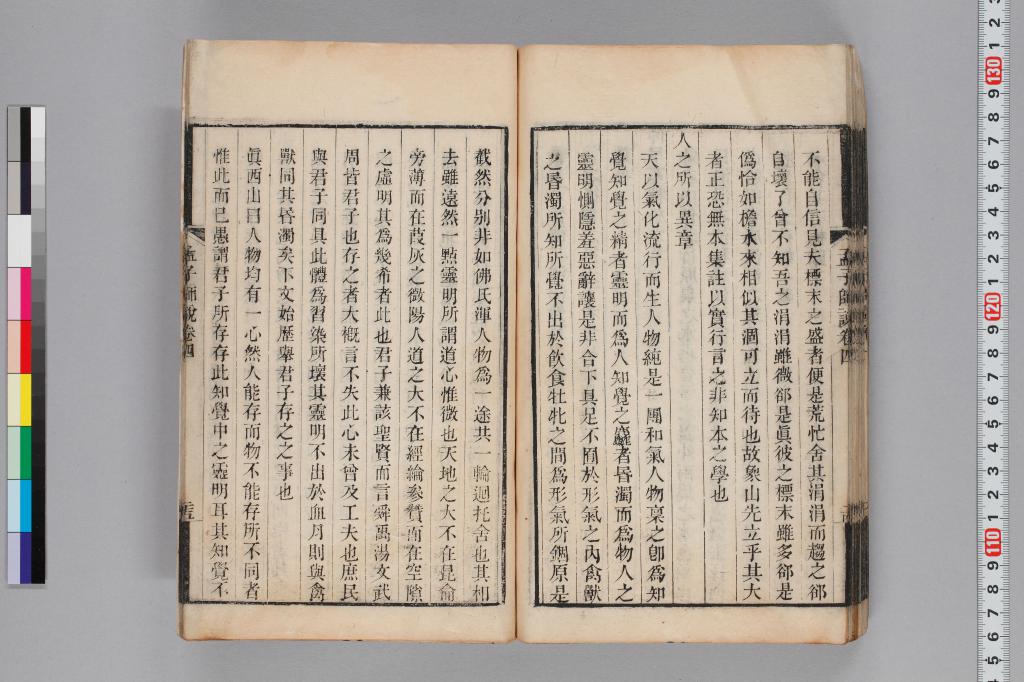 不能自信見夫標末之盛者便是荒忙舍其涓涓而趨之郤
自壞了曾不知吾之涓涓雖微郤是眞彼之標末雖多郤是
僞恰如檐水來相似其涸可立而待也故象山先立乎其大
者正恐無本集註以實行言之非知本之學也
人之所以異章
天以氣化流行而生人物純是一團和氣人物稟之卽爲知
覺知覺之精者靈明而爲人知覺之麤者昏濁而爲物人之
靈明惻隱羞惡辭讓是非合下具足不囿於形氣之內禽獸
之昏濁所知所覺不出於飮食牡牝之間爲形氣所錮原是
孟子師說卷四
截然分別非如佛氏渾人物爲一途共一輪迴托舍也其相
去雖遠然一㸃靈明所謂道心惟微也天地之大不在昆侖
旁薄而在葭灰之微陽人道之大不在經綸參贊而在空隙
之虛明其爲幾希者此也君子兼該聖賢而言舜禹湯文武
周皆君子也存之者大槪言不失此心未曾及工夫也庶民
與君子同具此體爲習染所壞其靈明不出於血肉則與禽
獸同其昏濁矣下文始歷舉君子存之之事也
眞西山曰人物均有一心然人能存而物不能存所不同者
惟此而已愚謂君子所存存此知覺中之靈明耳其知覺不
孟子師說卷四